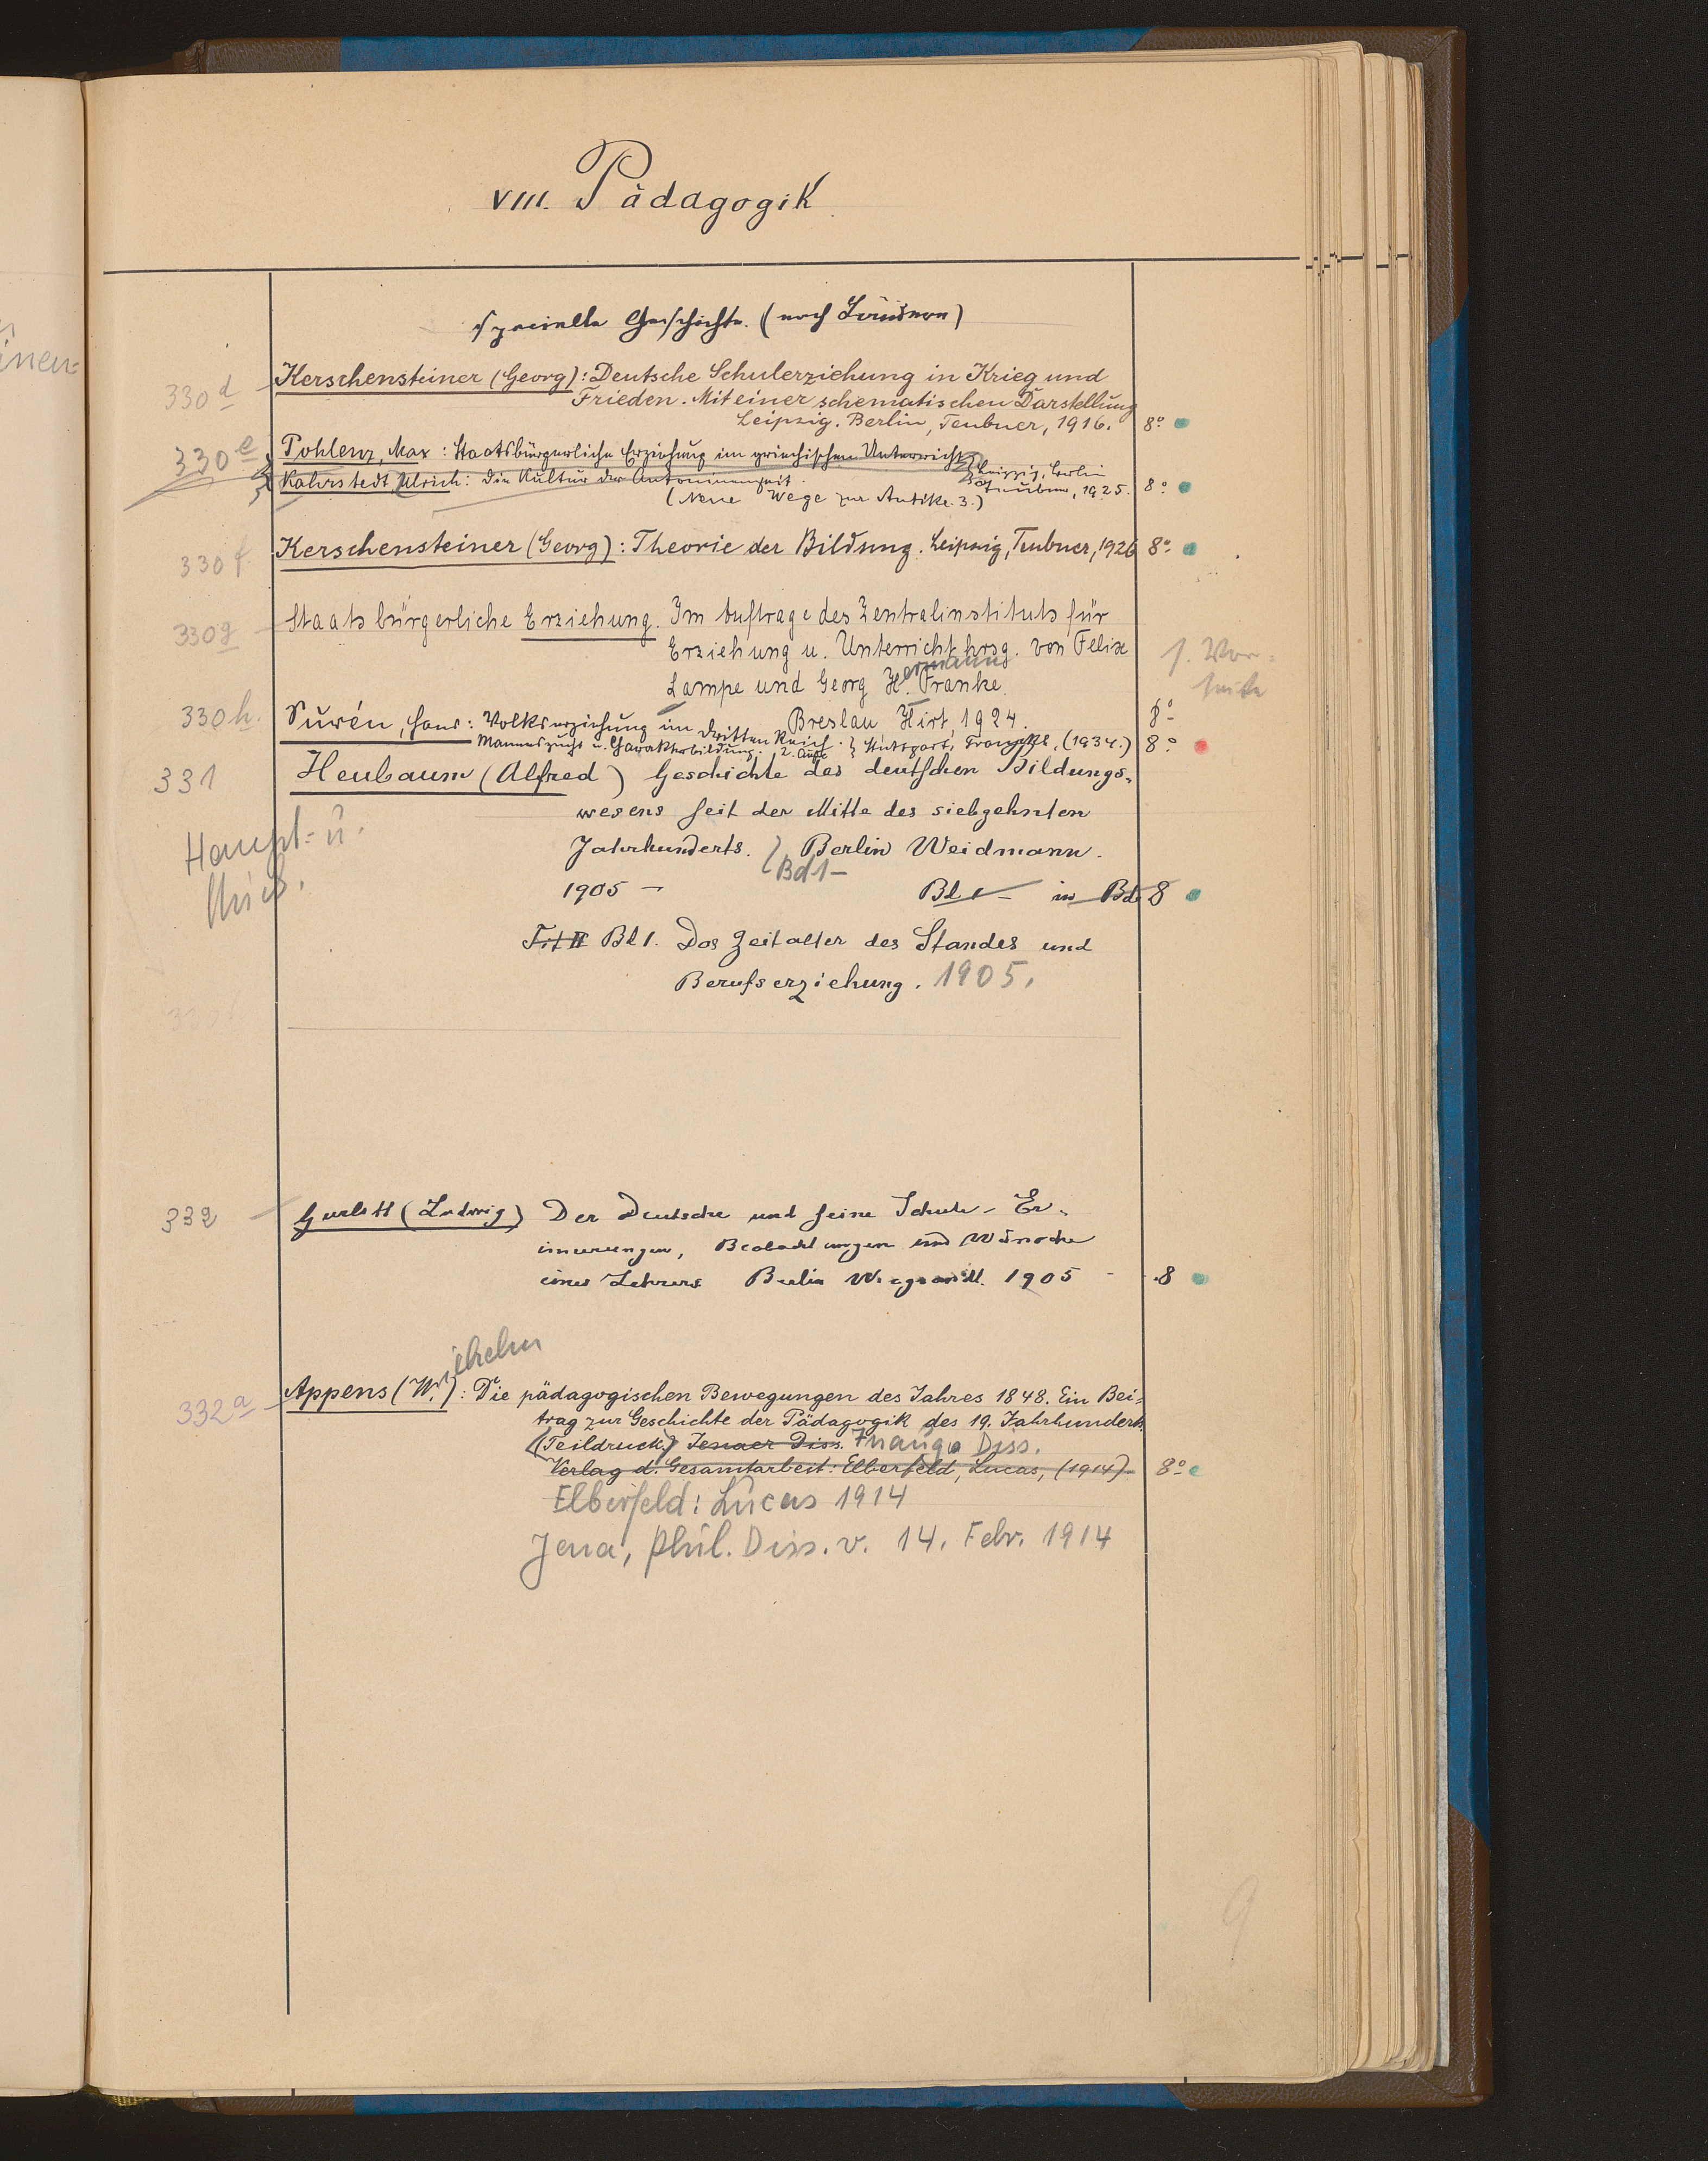 VIII. Pädagogik
specielle Geschichte. (nach Ländern)
330 d Kerschensteiner (Georg): Deutsche Schulerziehung in Krieg und
Frieden. Mit einer schematischen Darstellung
Leipzig. Berlin, Teubner, 1916. 8°
330 e Pohlenz, Max: Staatsbürgerliche Erziehung im griechischen Unterricht
Kahrstedt, Ulrich: Die Kultur der Antoninenzeit. Leipzig, Berlin
Teubner, 1925. 8°
(Neue Wege zur Antike. 3.)
330 f Kerschensteiner (Georg): Theorie der Bildung. Leipzig, Teubner, 1926 8°
330 g Staatsbürgerliche Erziehung. Im Auftrage des Zentralinstituts für
Erziehung u. Unterricht hrsg. von Felix
Lampe und Georg H. ermann Franke.
s. Vor=
seite
Breslau Hirt, 1924. 8°
330 h. Surén, Hans: Volkserziehung im dritten Reich.
Manneszucht u. Charakterbildung. 2. Aufl. Stuttgart, Franckh, (1934.) 8°
331 Heubaum (Alfred) Geschichte des deutschen Bildungs-
wesens seit der Mitte des siebzehnten
Jahrhunderts. Berlin Weidmann.
Haupt- u.
Bd 1 –
1905 – Bd 1 – in Bd 8
Tit II Bd 1. Das Zeitalter des Standes und
Berufserziehung. 1905.
332 Gurlitt (Ludwig) Der Deutsche und seine Schule – Er-
innerungen, Beobachtungen und Wünsche
eines Lehrers Berlin Wiegandt. 1905 – 8
332 a Appens (W. ilhelm): Die pädagogischen Bewegungen des Jahres 1848. Ein Bei=
trag zur Geschichte der Pädagogik des 19. Jahrhunderts.
(Teildruck) Jenaer Diss. Inaug. Diss.
Verlag d. Gesamtarbeit: Elberfeld, Lucas, (1914) 8°
Elberfeld: Lucas 1914
Jena, phil. Diss. v. 14. Febr. 1914
9